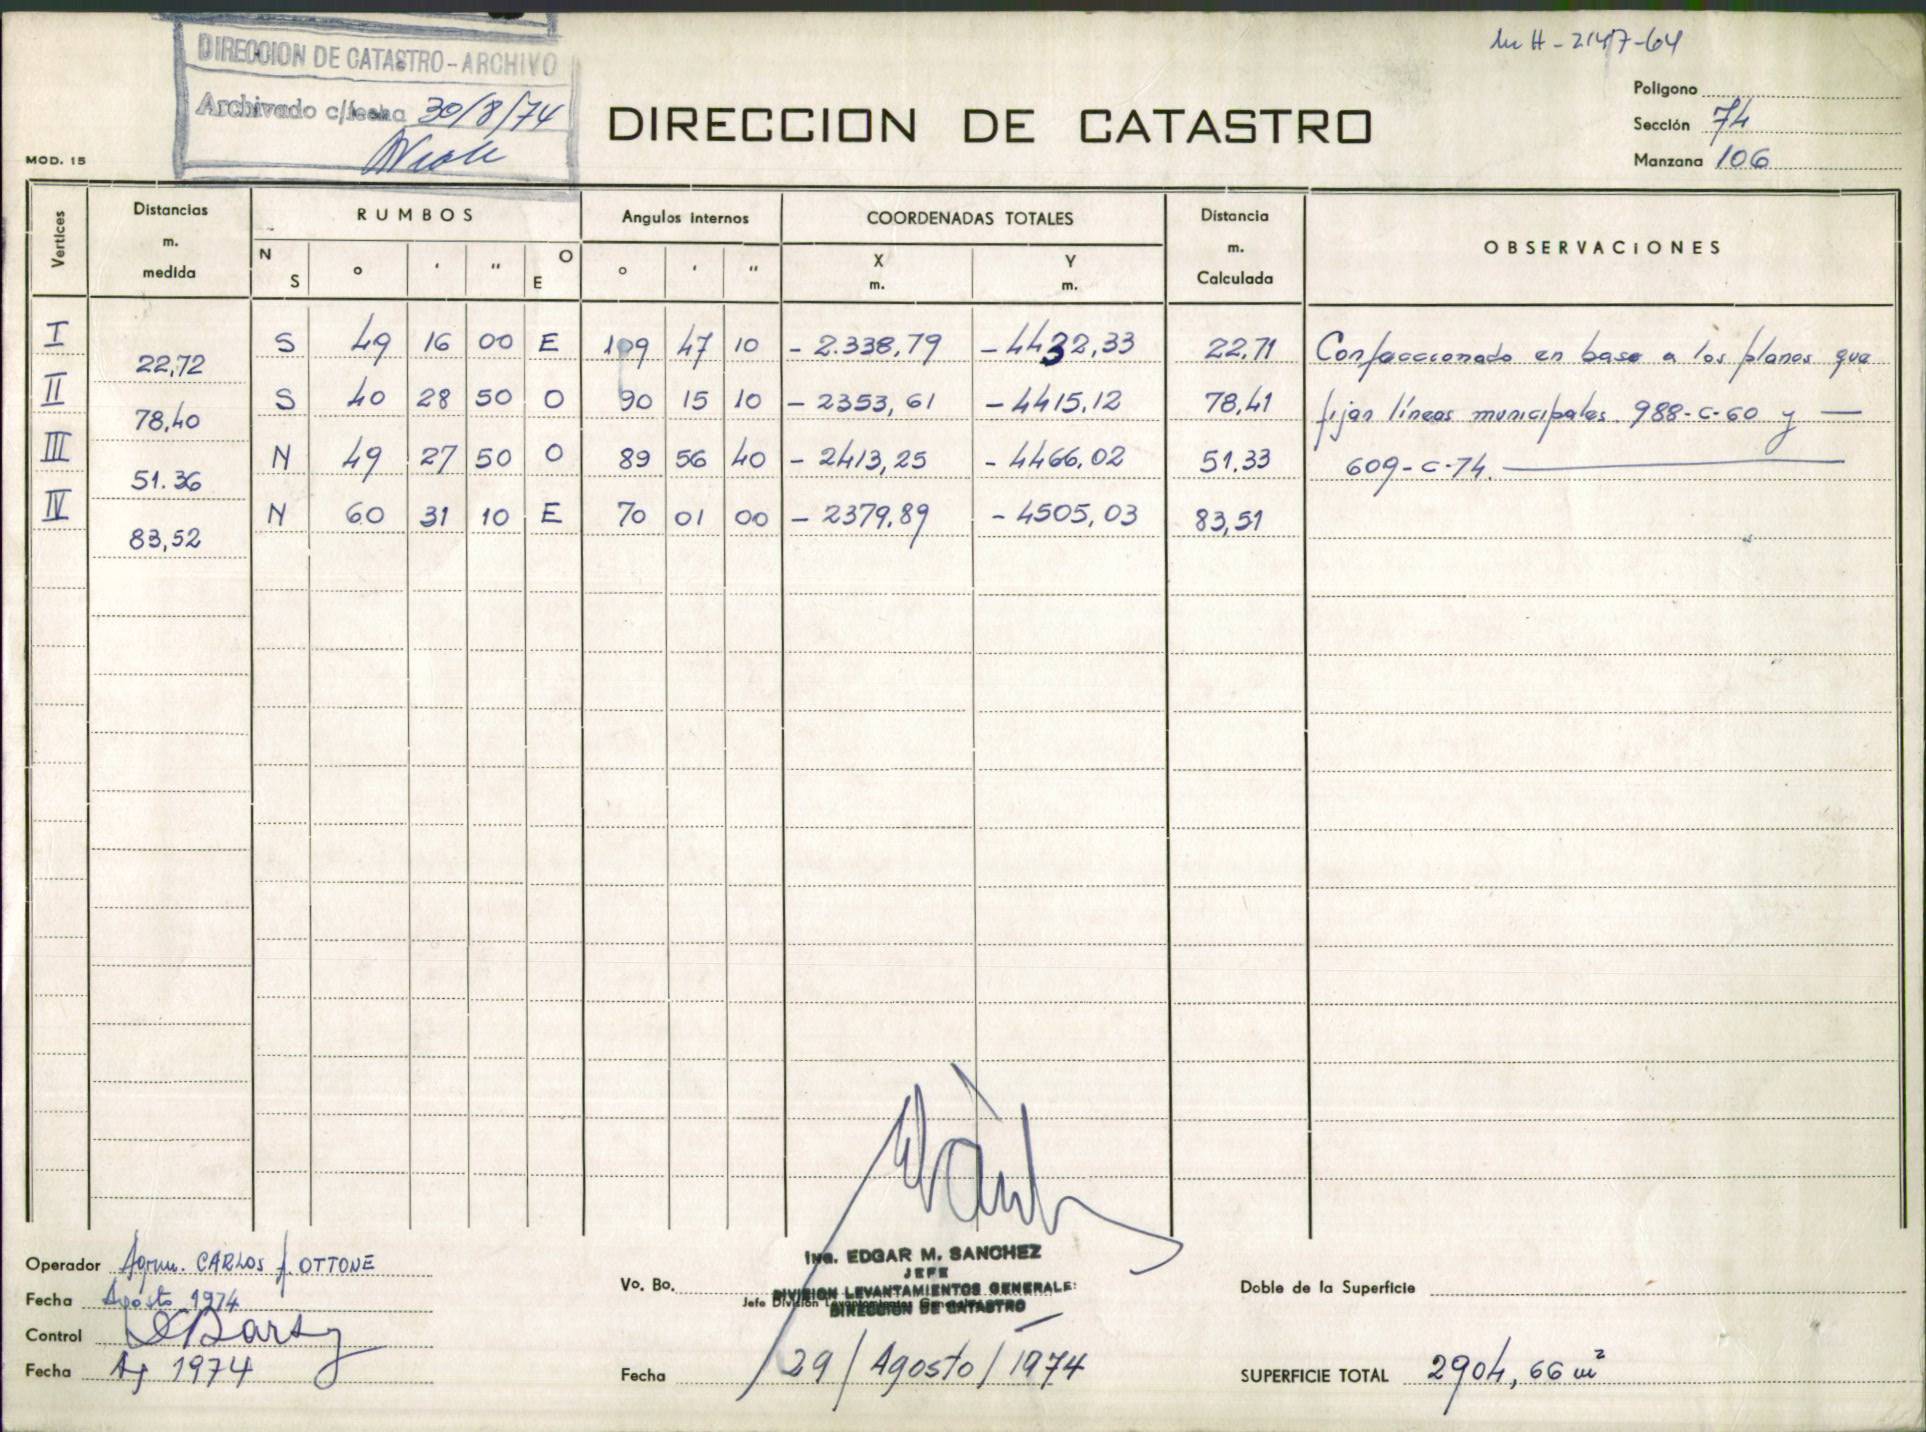 H-2147-64
DIRECCION DE CATASTRO - ARCHIVO
Archivado c/fecha 30/8/74
DIRECCION DE CATASTRO
Polígono
Sección 74
Manzana 106
MOD. 15
Vertices Distancias m. medida RUMBOS N S ° ' " O E Angulos internos ° ' " COORDENADAS TOTALES X m. Y m. Distancia m. Calculada OBSERVACIONES
I 22,72 S 49 16 00 E 109 47 10 - 2.338,79 - 4432,33 22,71 Confeccionado en base a los planos que
II 78,40 S 40 28 50 O 90 15 10 - 2353,61 - 4415,12 78,41 fijan líneas municipales 988-C-60 y —
III 51.36 N 49 27 50 O 89 56 40 - 2413,25 - 4466,02 51.33 609-C-74.
IV 83,52 N 60 31 10 E 70 01 00 - 2379,89 - 4505,03 83,51
Operador Agrim. CARLOS J. OTTONE
Fecha Agosto 1974
Control
Fecha Ag 1974
Vo. Bo.
Ing. EDGAR M. SANCHEZ
JEFE
DIVISION LEVANTAMIENTOS GENERALES
Jefe División Levantamientos Generales
DIRECCION DE CATASTRO
Fecha 29/Agosto/1974
Doble de la Superficie
SUPERFICIE TOTAL 2904,66 m²